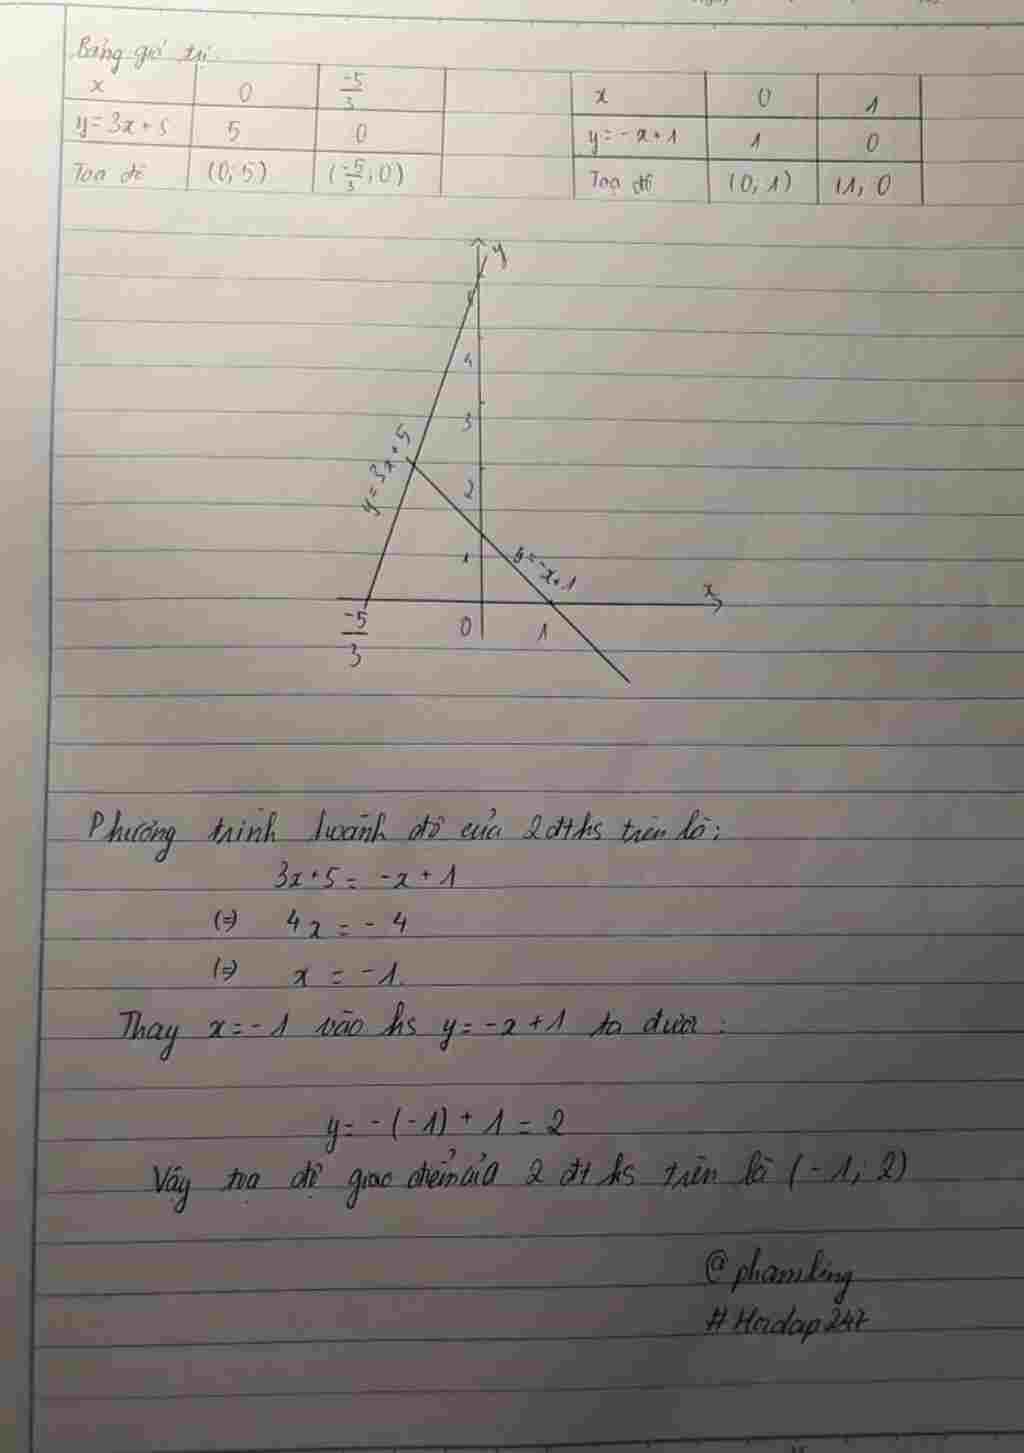 Bảng giá trị.
x 0 -5/3
y=3x+5 5 0
Toạ độ (0;5) (-5/3;0)
x 0 1
y=-x+1 1 0
Toạ độ (0;1) (1;0
y
5
4
3
2
1
y=3x+5
y=-x+1
x
-5/3
0
1
Phương trình hoành độ của 2 đths trên là:
3x+5=-x+1
(=) 4x=-4
(=) x=-1.
Thay x=-1 vào hs y=-x+1 ta được:
y=-(-1)+1=2
Vậy toạ độ giao điểm của 2 đt hs trên là (-1;2)
@phamling
#Hoidap247